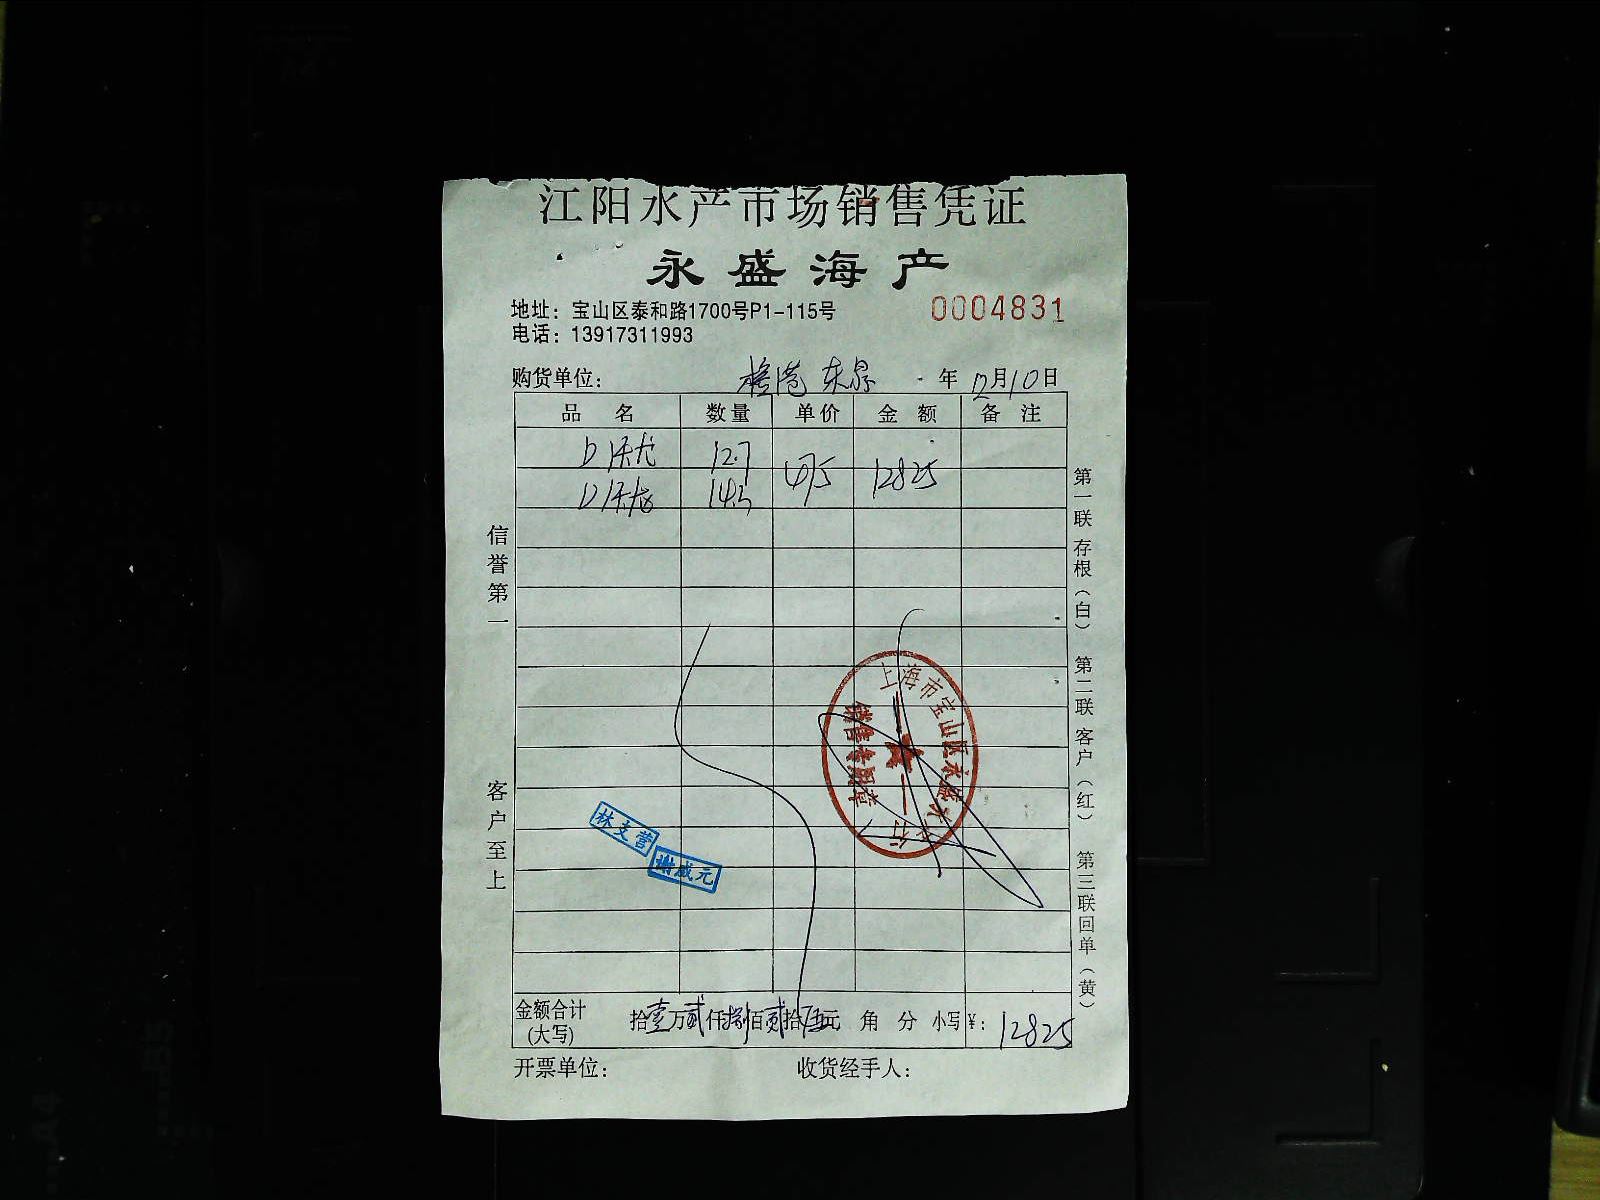 江阳水产市场销售凭证
永盛海产
地址：宝山区泰和路1700号P1-115号
0004831
电话：13917311993
购货单位： 年 12月10日
品名 数量 单价 金额 备注
12.7 475 12825
14.3
信誉第一
客户至上
第一联存根（白） 第二联客户（红） 第三联回单（黄）
上海市宝山区永盛水
行
销售专用章
林支营
谢成元
金额合计 拾壹万贰仟捌佰贰拾伍元 角 分 小写￥：12825
(大写)
开票单位： 收货经手人：